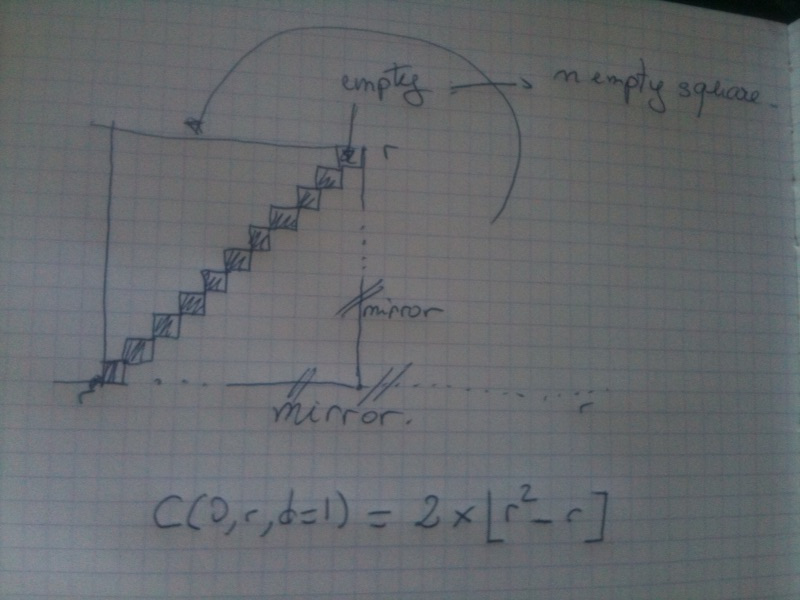 empty → n empty square.
r
mirror
r
r
mirror.
C(0,r,d=1) = 2 × [r² - r]